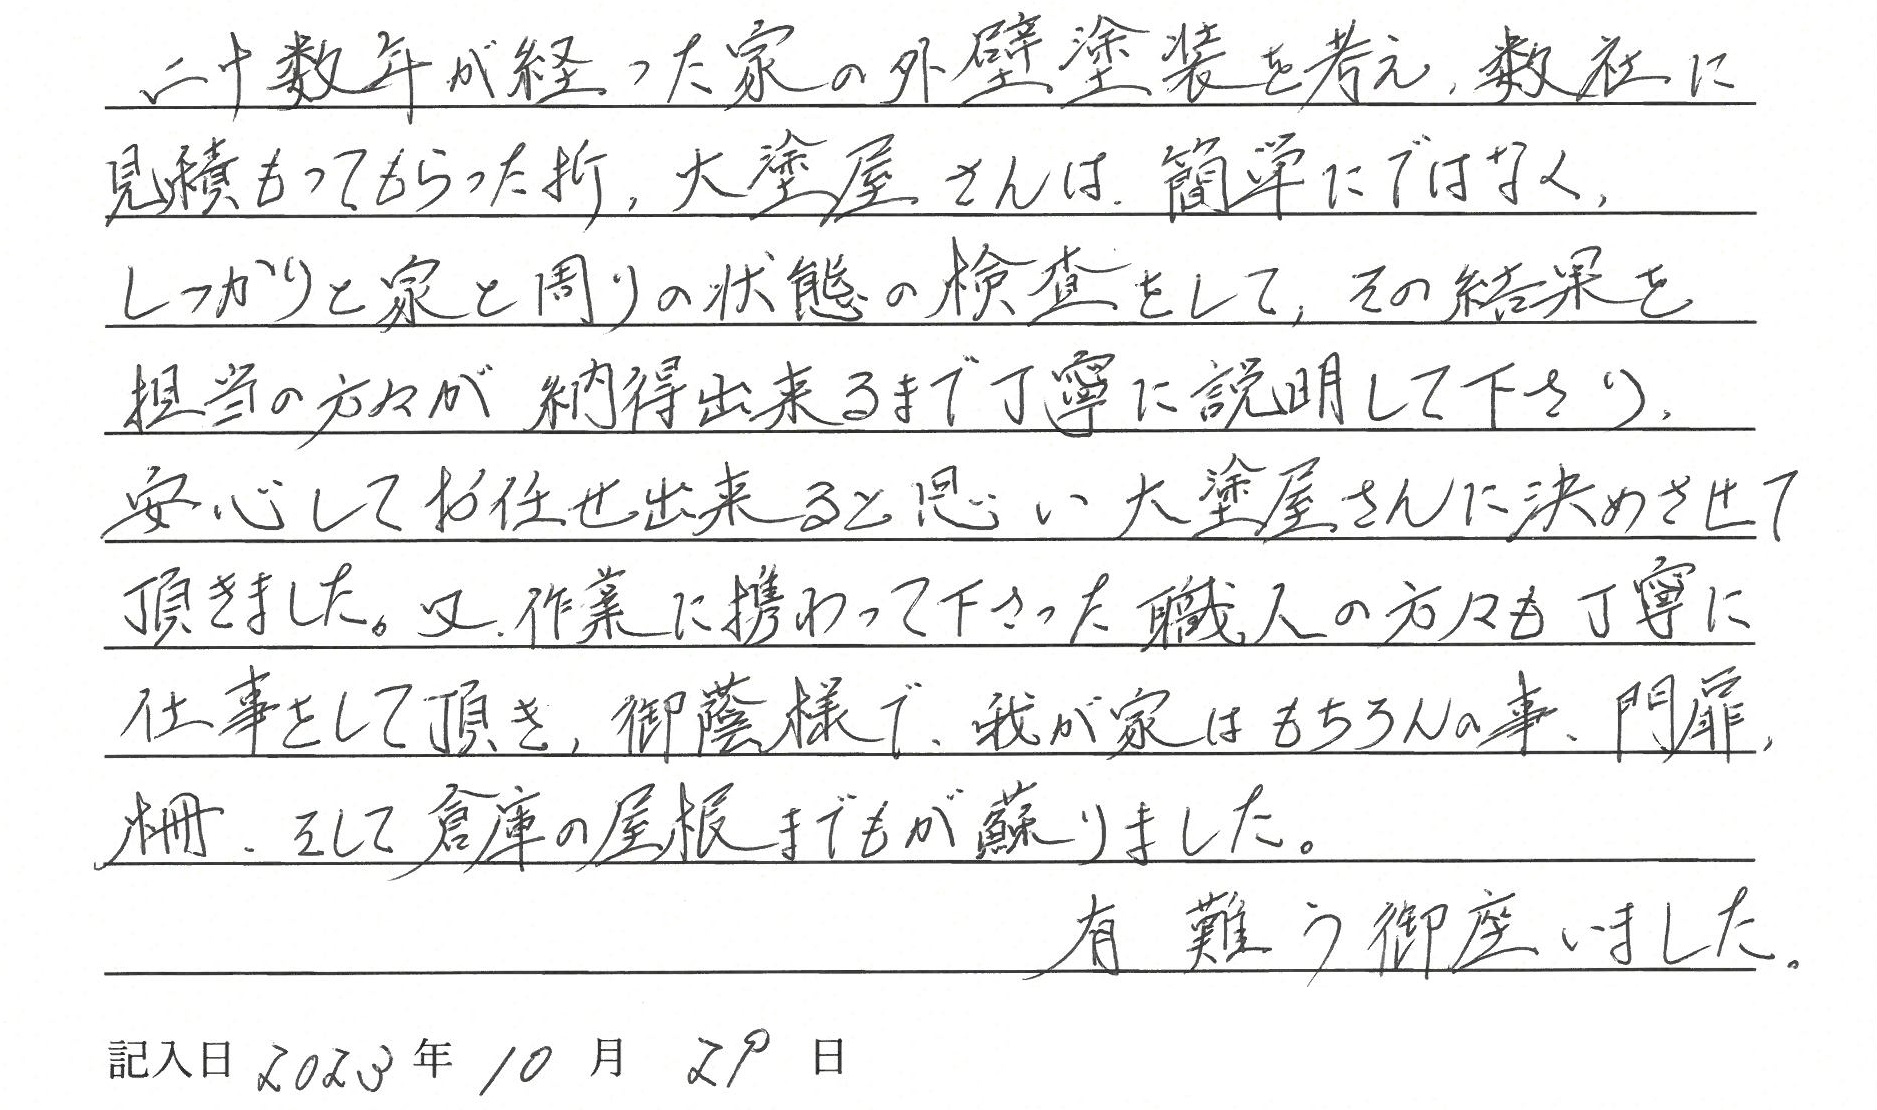 二十数年が経った家の外壁塗装を考え、数社に
見積もってもらった折、大塗屋さんは、簡単にではなく、
しっかりと家と周りの状態の検査をして、その結果を
担当の方々が納得出来るまで丁寧に説明して下さり、
安心してお任せ出来ると思い大塗屋さんに決めさせて
頂きました。又、作業に携わって下さった職人の方々も丁寧に
仕事をして頂き、御蔭様で、我が家はもちろんの事、門扉、
柵、そして倉庫の屋根までもが蘇りました。
有難う御座いました。
記入日 2023年 10月 29日